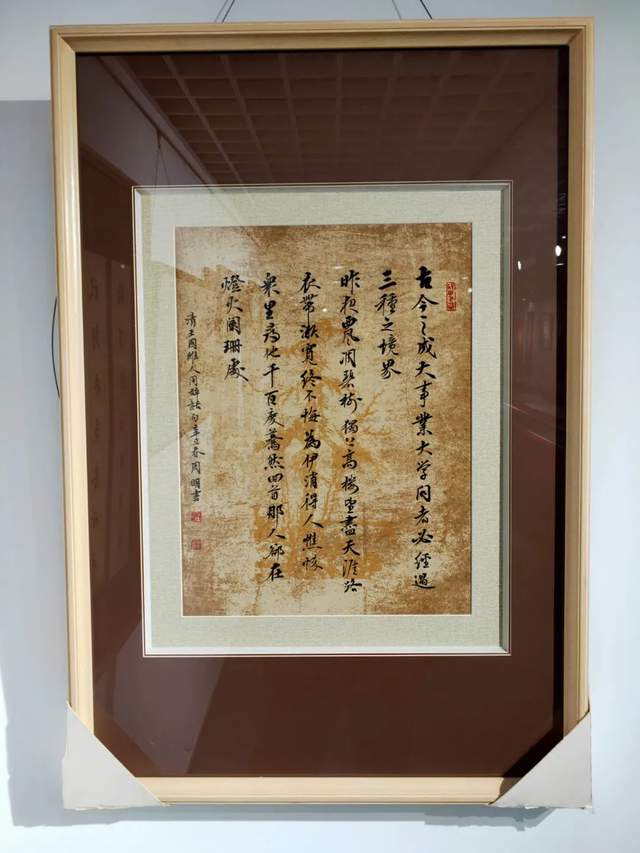 古今之成大事業大学问者必經過
三種之境界
昨夜西風凋碧樹獨上高樓望盡天涯路
衣帶漸寬终不悔為伊消得人憔悴
衆里尋他千百度驀然回首那人卻在
燈火闌珊處
清王國維人间詞話句辛丑春周明書